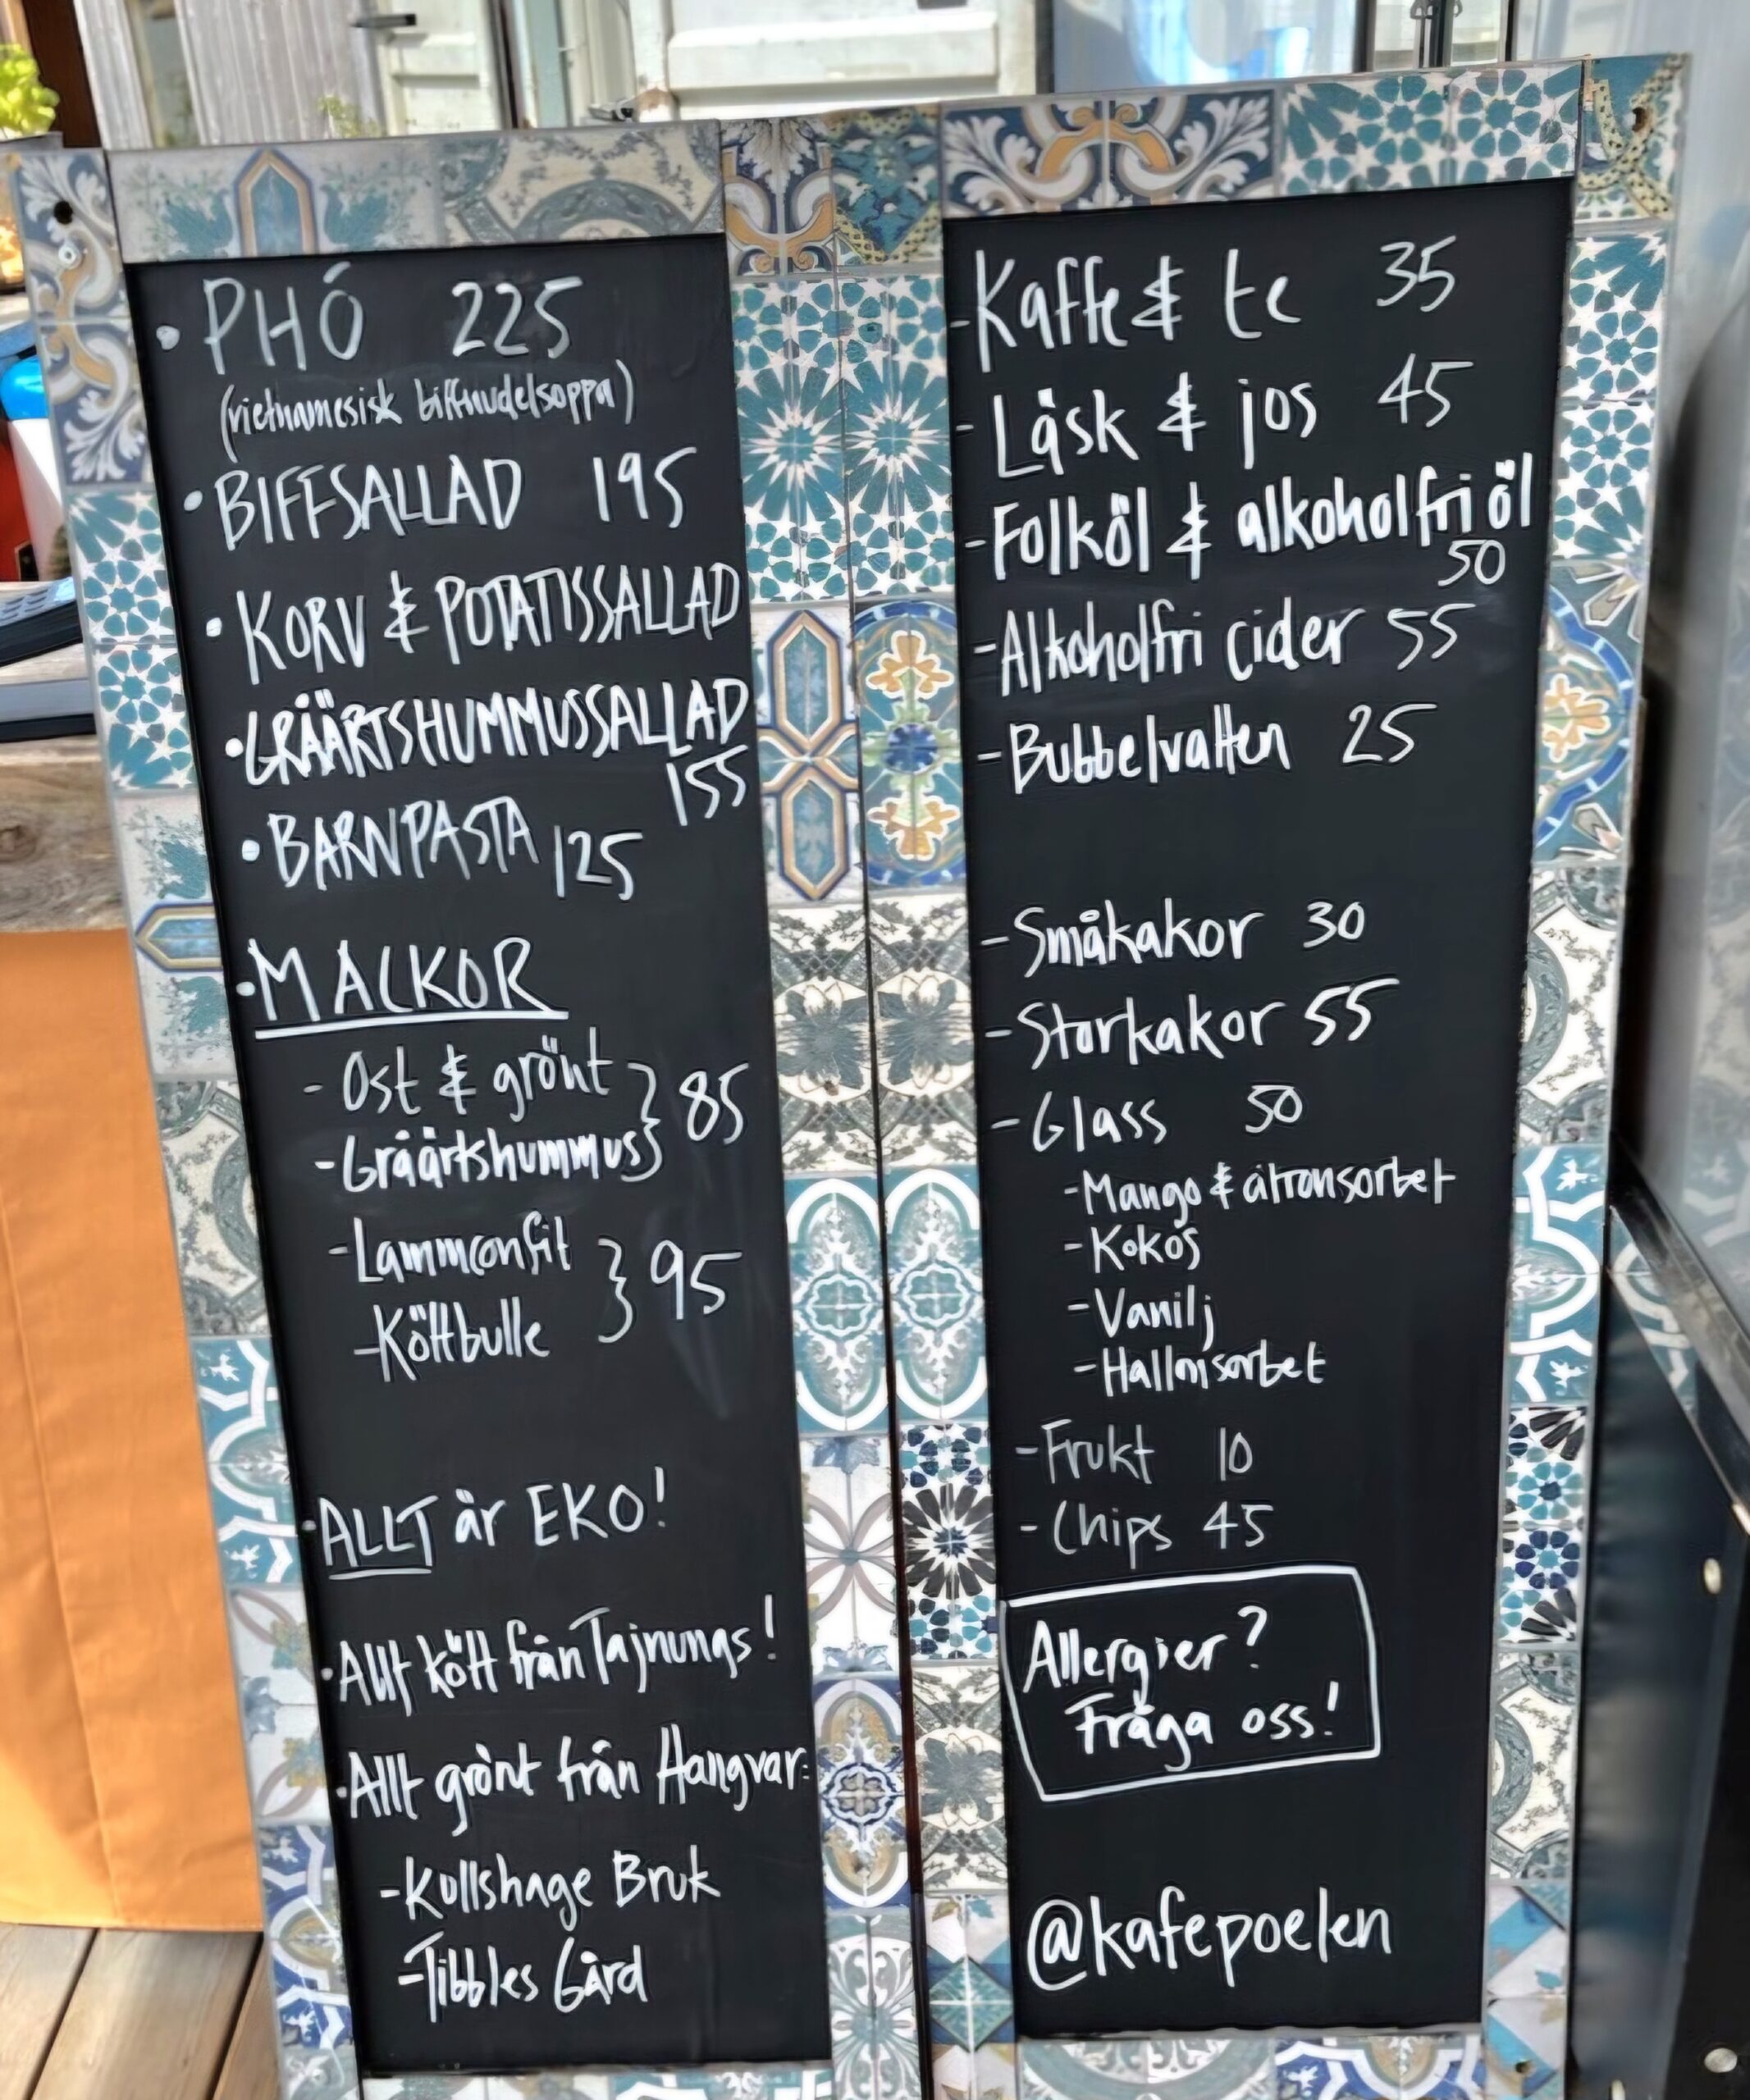 • PHÓ 225
(vietnamesisk biffnudelsoppa)
• BIFFSALLAD 195
• KORV & POTATISSALLAD
• GRÅÄRTSHUMMUSSALLAD
155
• BARNPASTA 125
• MACKOR
- Ost & grönt
- Gråärtshummus } 85
- Lammconfit
- Köttbulle } 95
• ALLT är EKO!
• Allt kött från Tajnungs!
• Allt grönt från Hangvar:
- Kullshage Bruk
- Tibbles Gård
- Kaffe & te 35
- Läsk & jos 45
- Folköl & alkoholfri öl
50
- Alkoholfri cider 55
- Bubbelvatten 25
- Småkakor 30
- Storkakor 55
- Glass 50
- Mango & citronsorbet
- Kokos
- Vanilj
- Hallonsorbet
- Frukt 10
- Chips 45
Allergier?
Fråga oss!
@kafepoelen